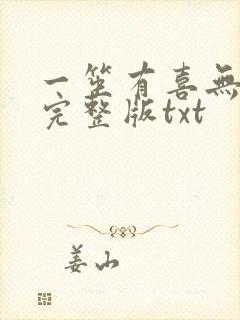 一筌有喜無
完整版txt
姜山